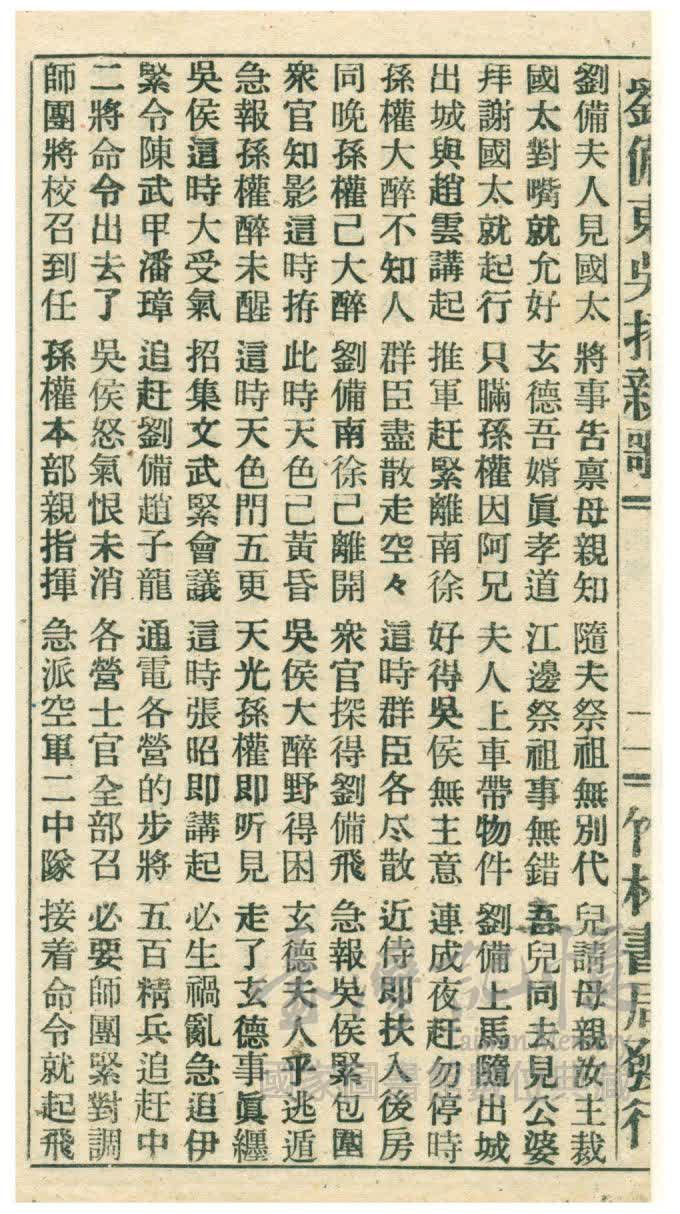 劉備東吳招親歌
二
竹林書局發行
劉備夫人見國太 將事告禀母親知 隨夫祭祖無別代 兒請母親汝主裁
國太對嘴就允好 玄德吾婿眞孝道 江邊祭祖事無錯 吾兒同夫見公婆
拜謝國太就起行 只瞞孫權因阿兄 夫人上車帶物件 劉備上馬隨出城
出城與趙雲講起 推軍赶緊離南徐 好得吳侯無主意 連成夜赶勿停時
孫權大醉不知人 群臣盡散走空々 這時群臣各尽散 近侍即扶入後房
同晚孫權己大醉 劉備南徐己離開 衆官探得劉備飛 急報吳侯緊包圍
衆官知影這時拵 此時天色己黃昏 吳侯大醉野得困 玄德夫人乎逃遁
急報孫權醉未醒 這時天色閂五更 天光孫權即听見 走了玄德事眞纏
吳侯這時大受氣 招集文武緊會議 這時張昭即講起 必生禍亂急追伊
緊令陳武甲潘璋 追赶劉備趙子龍 通電各營的步將 五百精兵追赶中
二將命令出去了 吳侯怒氣恨未消 各營士官全部召 必要師團緊對調
師團將校召到任 孫權本部親指揮 急派空軍二中隊 接着命令就起飛
國家圖書館數位典藏